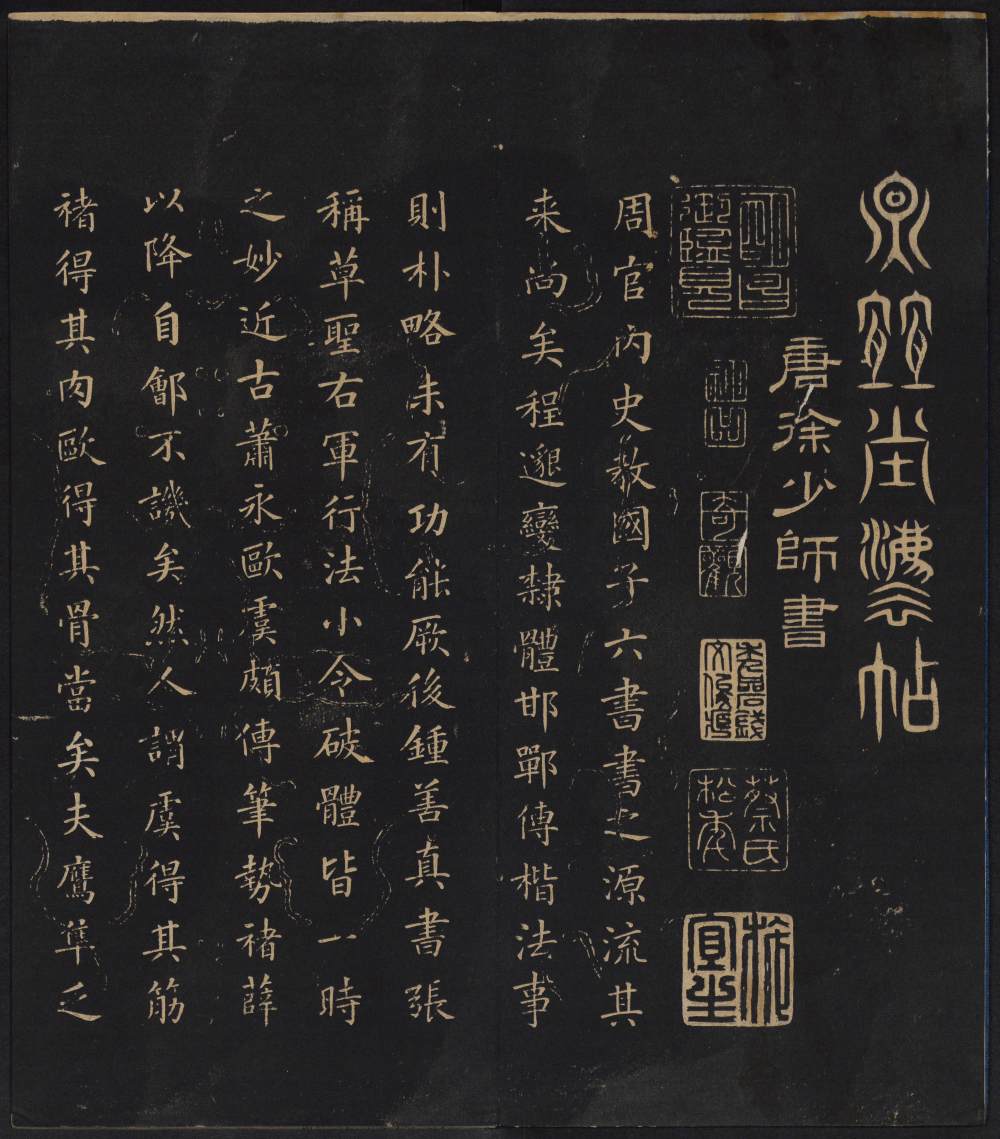 堂灋帖
唐徐少師書
奇觀
蔡氏
周官內史教國子六書書之源流其
来尚矣程邈變隸體邯鄲傳楷法事
則朴略未有功能厥後鍾善真書張
稱草聖右軍行法小令破體皆一時
之妙近古蕭永歐虞頗傳筆勢褚薛
以降自鄶不譏矣然人謂虞得其筋
褚得其肉歐得其骨當矣夫鷹隼乏